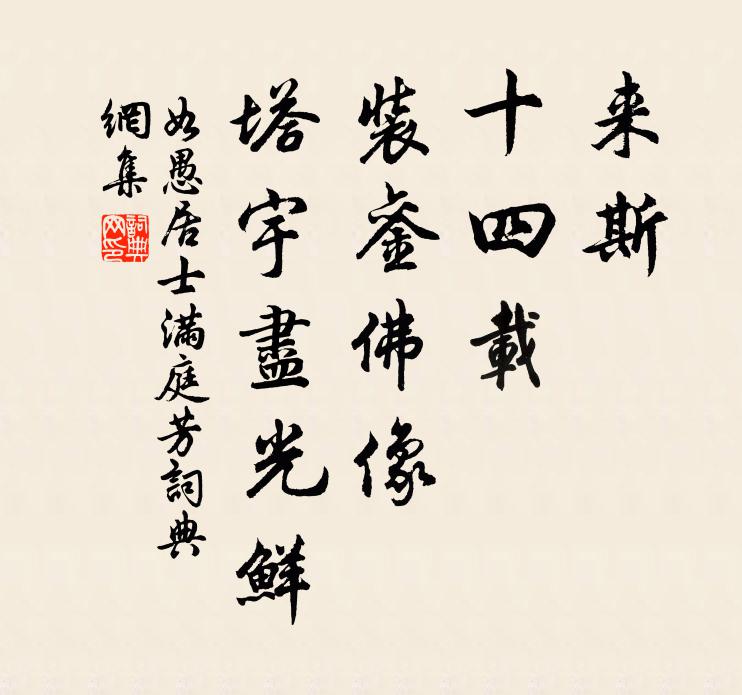 来斯
十四載
裝銮佛像
塔宇盡光鮮
如愚居士滿庭芳詞典
網集
詞典
网印